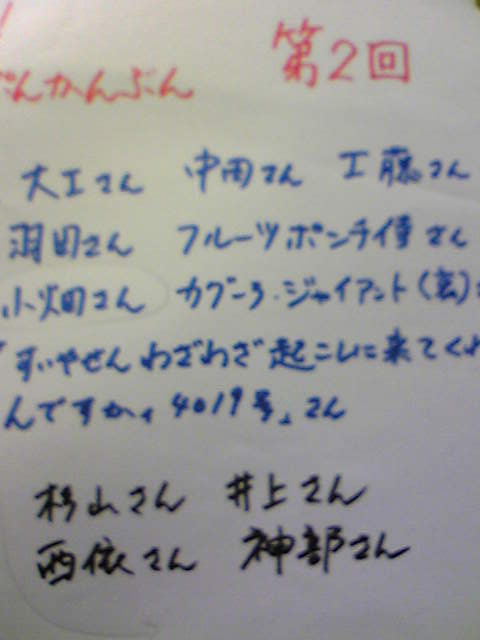 第2回
ぷんかんぶん
大工さん 中田さん 工藤さん
羽田さん フルーツポンチ侍さん
小畑さん カブーラ・ジャイアント(玄)
すいやせんわざわざ起こしに来てくれ
んですか、4019号」さん
杉山さん 井上さん
西依さん 神部さん